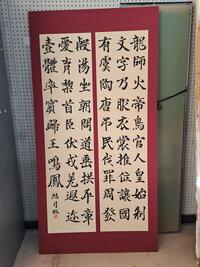 龍師火帝鳥官人皇始制
文字乃服衣裳推位讓國
有虞陶唐吊民伐罪周發
殷湯坐朝問道垂拱平章
愛育黎首臣伏戎羌遐邇
壹體率賓歸王鳴鳳